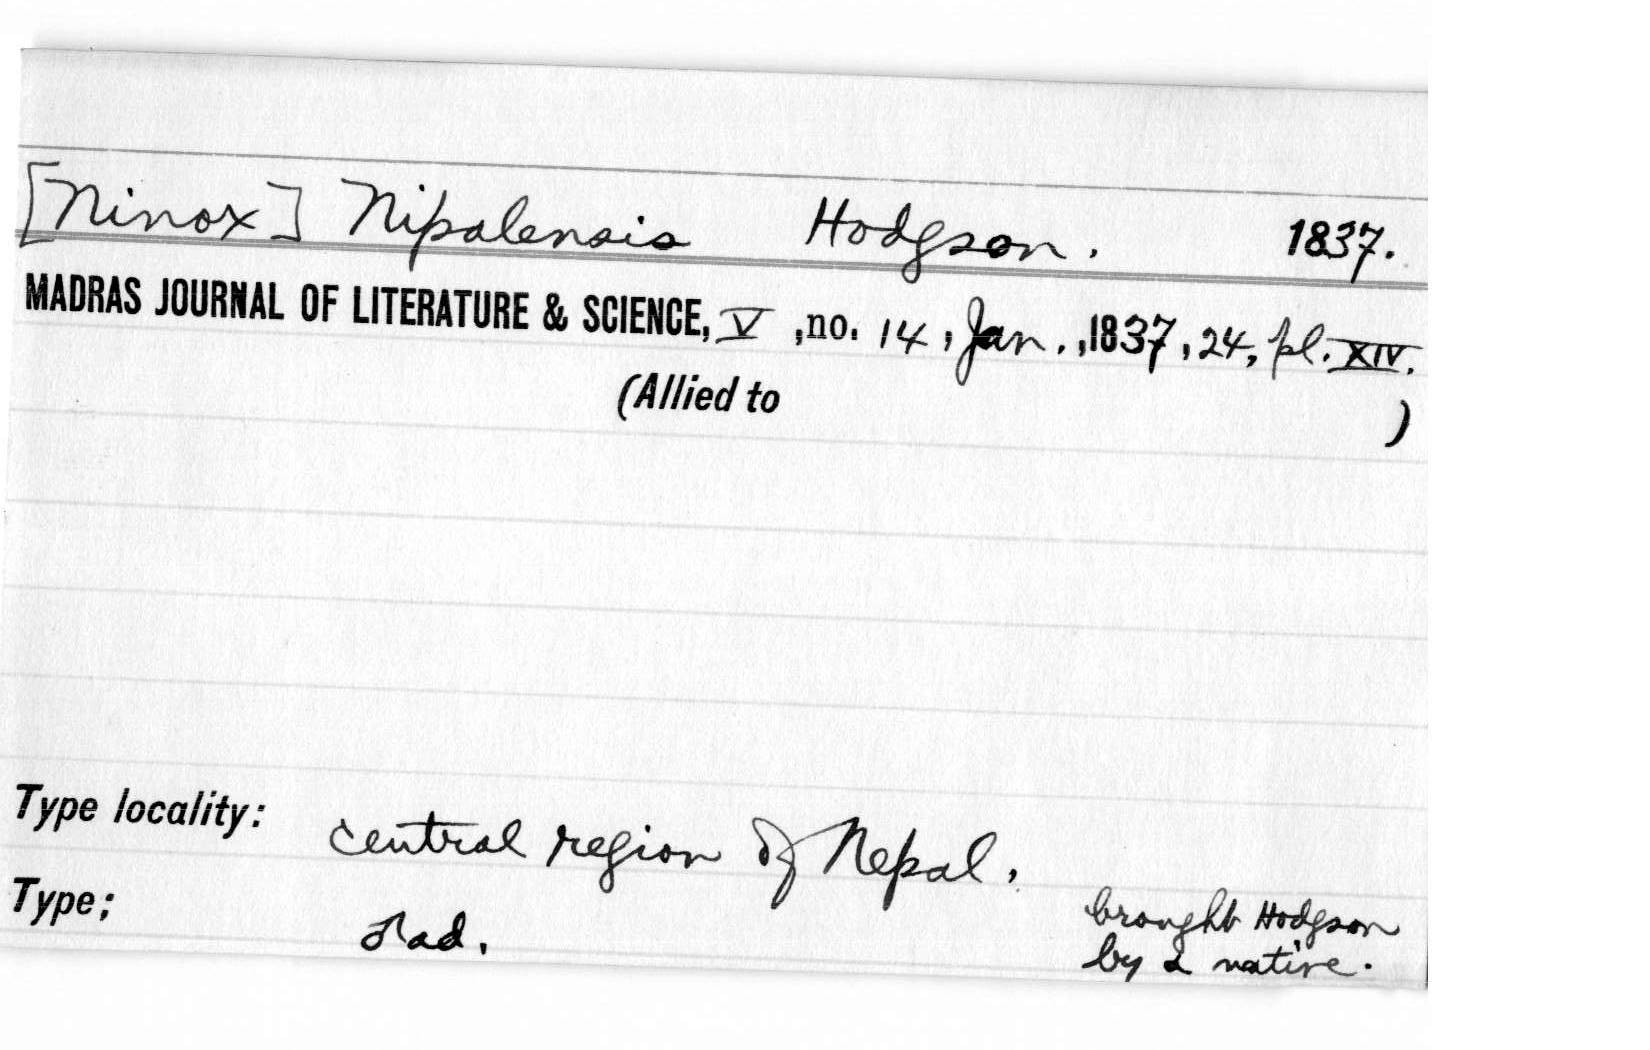 [Ninox] Nipalensis Hodgson. 1837.
MADRAS JOURNAL OF LITERATURE & SCIENCE, V ,no. 14, Jan. ,1837, 24, pl. XIV.
(Allied to )
Type locality: central region of Nepal.
Type; ♂ad. brought Hodgson
by a native.